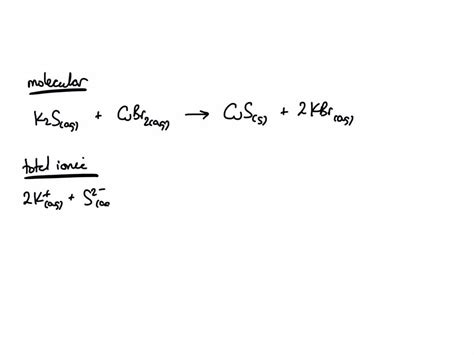 molecular
K₂S(aq) + CuBr₂(aq) → CuS(s) + 2KBr(aq)
total ionic
2K⁺(aq) + S²⁻(aq